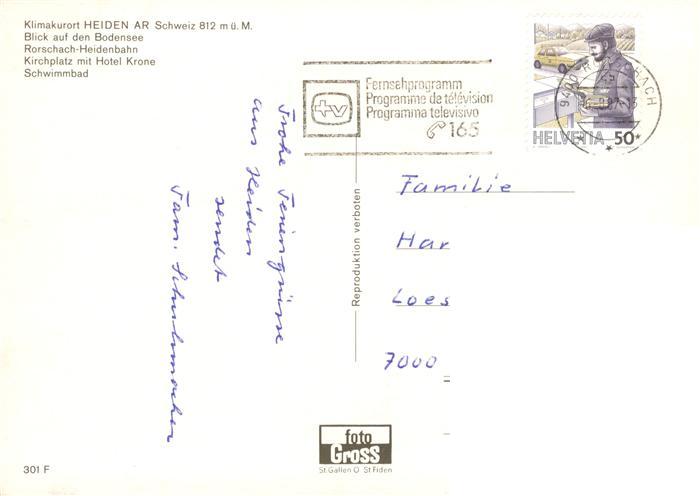 Klimakurort HEIDEN AR Schweiz 812 m ü. M.
Blick auf den Bodensee
Rorschach-Heidenbahn
Kirchplatz mit Hotel Krone
Schwimmbad
tv
Fernsehprogramm
Programme de télévision
Programma televisivo
165
HELVETIA 50
Frohe Feriengrüsse
aus Heiden
sendet
Fam. Schuhmacher
Reproduktion verboten
Familie
Har
Loes
7000
foto
Gross
St. Gallen O St. Fiden
301 F